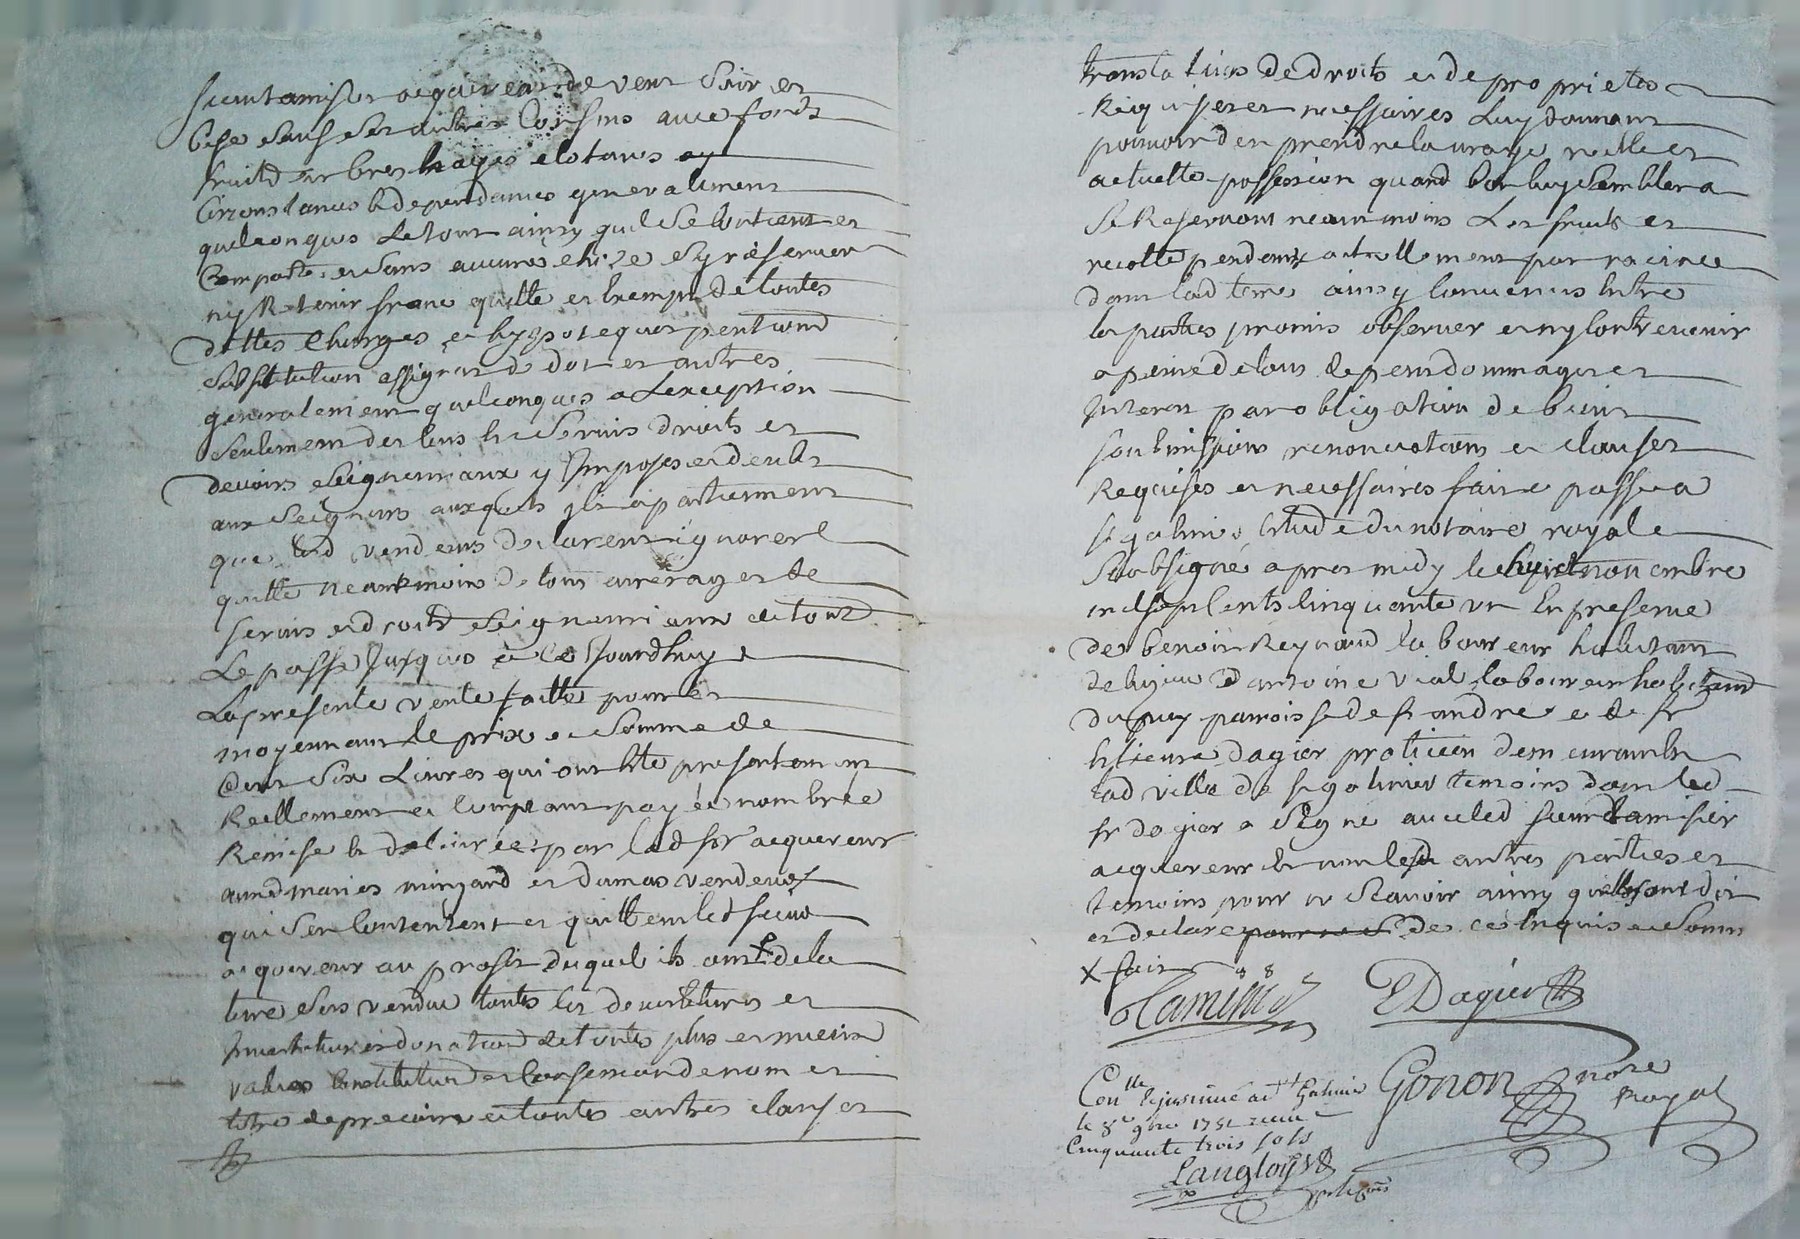 sieur tamisier acquereur de vent soir et
bise sauf ses autres Confins avec fonds
fruitd arbres hayes clotures
Circonstances & dependances generalement
quelconques le tout ainsy quil se Contient et
Comporte et sans aucune choze s'y reserver
ny Retenir franc quitte et Exempt de toutes
dettes Charges et hypoteques pentiond
substitution assignat de dot et autres
generalement quelconques a Lexception
seulement des Cens & servis droits et
devoirs seigneuriaux y Imposes et deubt
aux seigneurs auxquels ils apartiennent
que lesd vendeurs declarent ignorer &
quitte neantmoins de tous arrerages de
servis et droits seigneuriaux de tout
Le passé Jusques a ce Jourdhuy
La presente vente faitte pour et
moyennant le prix et somme de
Cent six Livres qui ont Eté presentement
Reellement et Comptant payé et nombrée
Remise & delivrée par led sr acquereur
auxd maries mingard et dumas vendeurs
qui sen Contentent et quittent led sieur
acquereur au profit duquel ils ont X de la
terre sus vendue toutes les devestitures et
Investitures donation de toutes plus et mieux
values Constitution et Consernande nom et
titre de precaire et toutes autres clauses
translatives de droits et de proprietes
Requises et necessaires Luy donnant
pouvoir d en prendre la vraye reelle et
actuelle possession quand bon luy semblera
se Reservant neantmoins Les fruits et
recolte pendants actuellement par racine
dans lad terre ainsy Convenus Entre
les parties promis observer et ny Contrevenir
a peine de tous depens dommages et
Interet par obligation de biens
soubmissions renonciations et clauses
Requises et necessaires fait et passé a
st galmier Etude du notaire royale
soubsigné apres midy le huit novembre
mil sept Cents Cinquante un En presence
des benoit Reynaud laboureur habitant
de & antoine vial laboureur habitant
du puy parroisse de st andré et de sr
Etienne dagier praticien demeurant En
lad ville de st galmier temoins dont led
sr dagier a signé avec led sieur tamisier
acquereur & non les autres parties et
temoins pour ne scavoir ainsy quils ont dit
et declaré de ce Enquis et somm
X fait
Tamisier EDagier
Conlle & insinué a st Galmier
le 8e 9bre 1751 recu
Cinquante trois sols
Langlois
Gonon nore
Royal